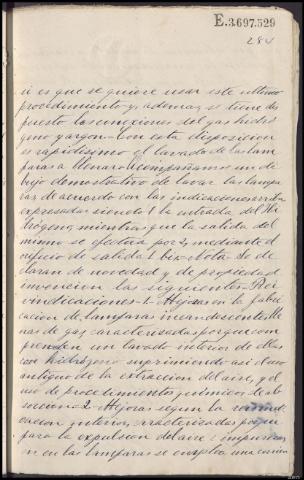 E.3.697.529
284
si es que se quiere usar este ultimo
procedimiento y, ademas, se tiene dis
puesto las conexiones del gas hidró
geno y argon- Con esta disposicion
es rapidisimo el lavado de las lam
paras a llenar. Acompañamos un di
bujo demostrativo de lavar las lampa
ras de acuerdo con las indicaciones arriba
expresadas siendo 1 la entrada del Hi
drógeno, mientras que la salida del
mismo se efectua por 2, mediante el
orificio de salida 1 bis- Nota- Se de
claran de novedad y de propiedad
invencion las siguientes- Rei
vindicaciones- 1- Mejoras en la fabri
cacion de lamparas incandescentes lle
nas de gas, caracterizadas porque com
prenden un lavado interior de ellas
con hidrógeno suprimiendo asi el uso
antiguo de la extraccion del aire, y el
uso de procedimientos quimicos de ab
socion- 2- Mejoras segun la reivindi
cacion anterior, caracterizadas porque
para la expulsion del aire e impurezas
en las lamparas se emplea una corrien